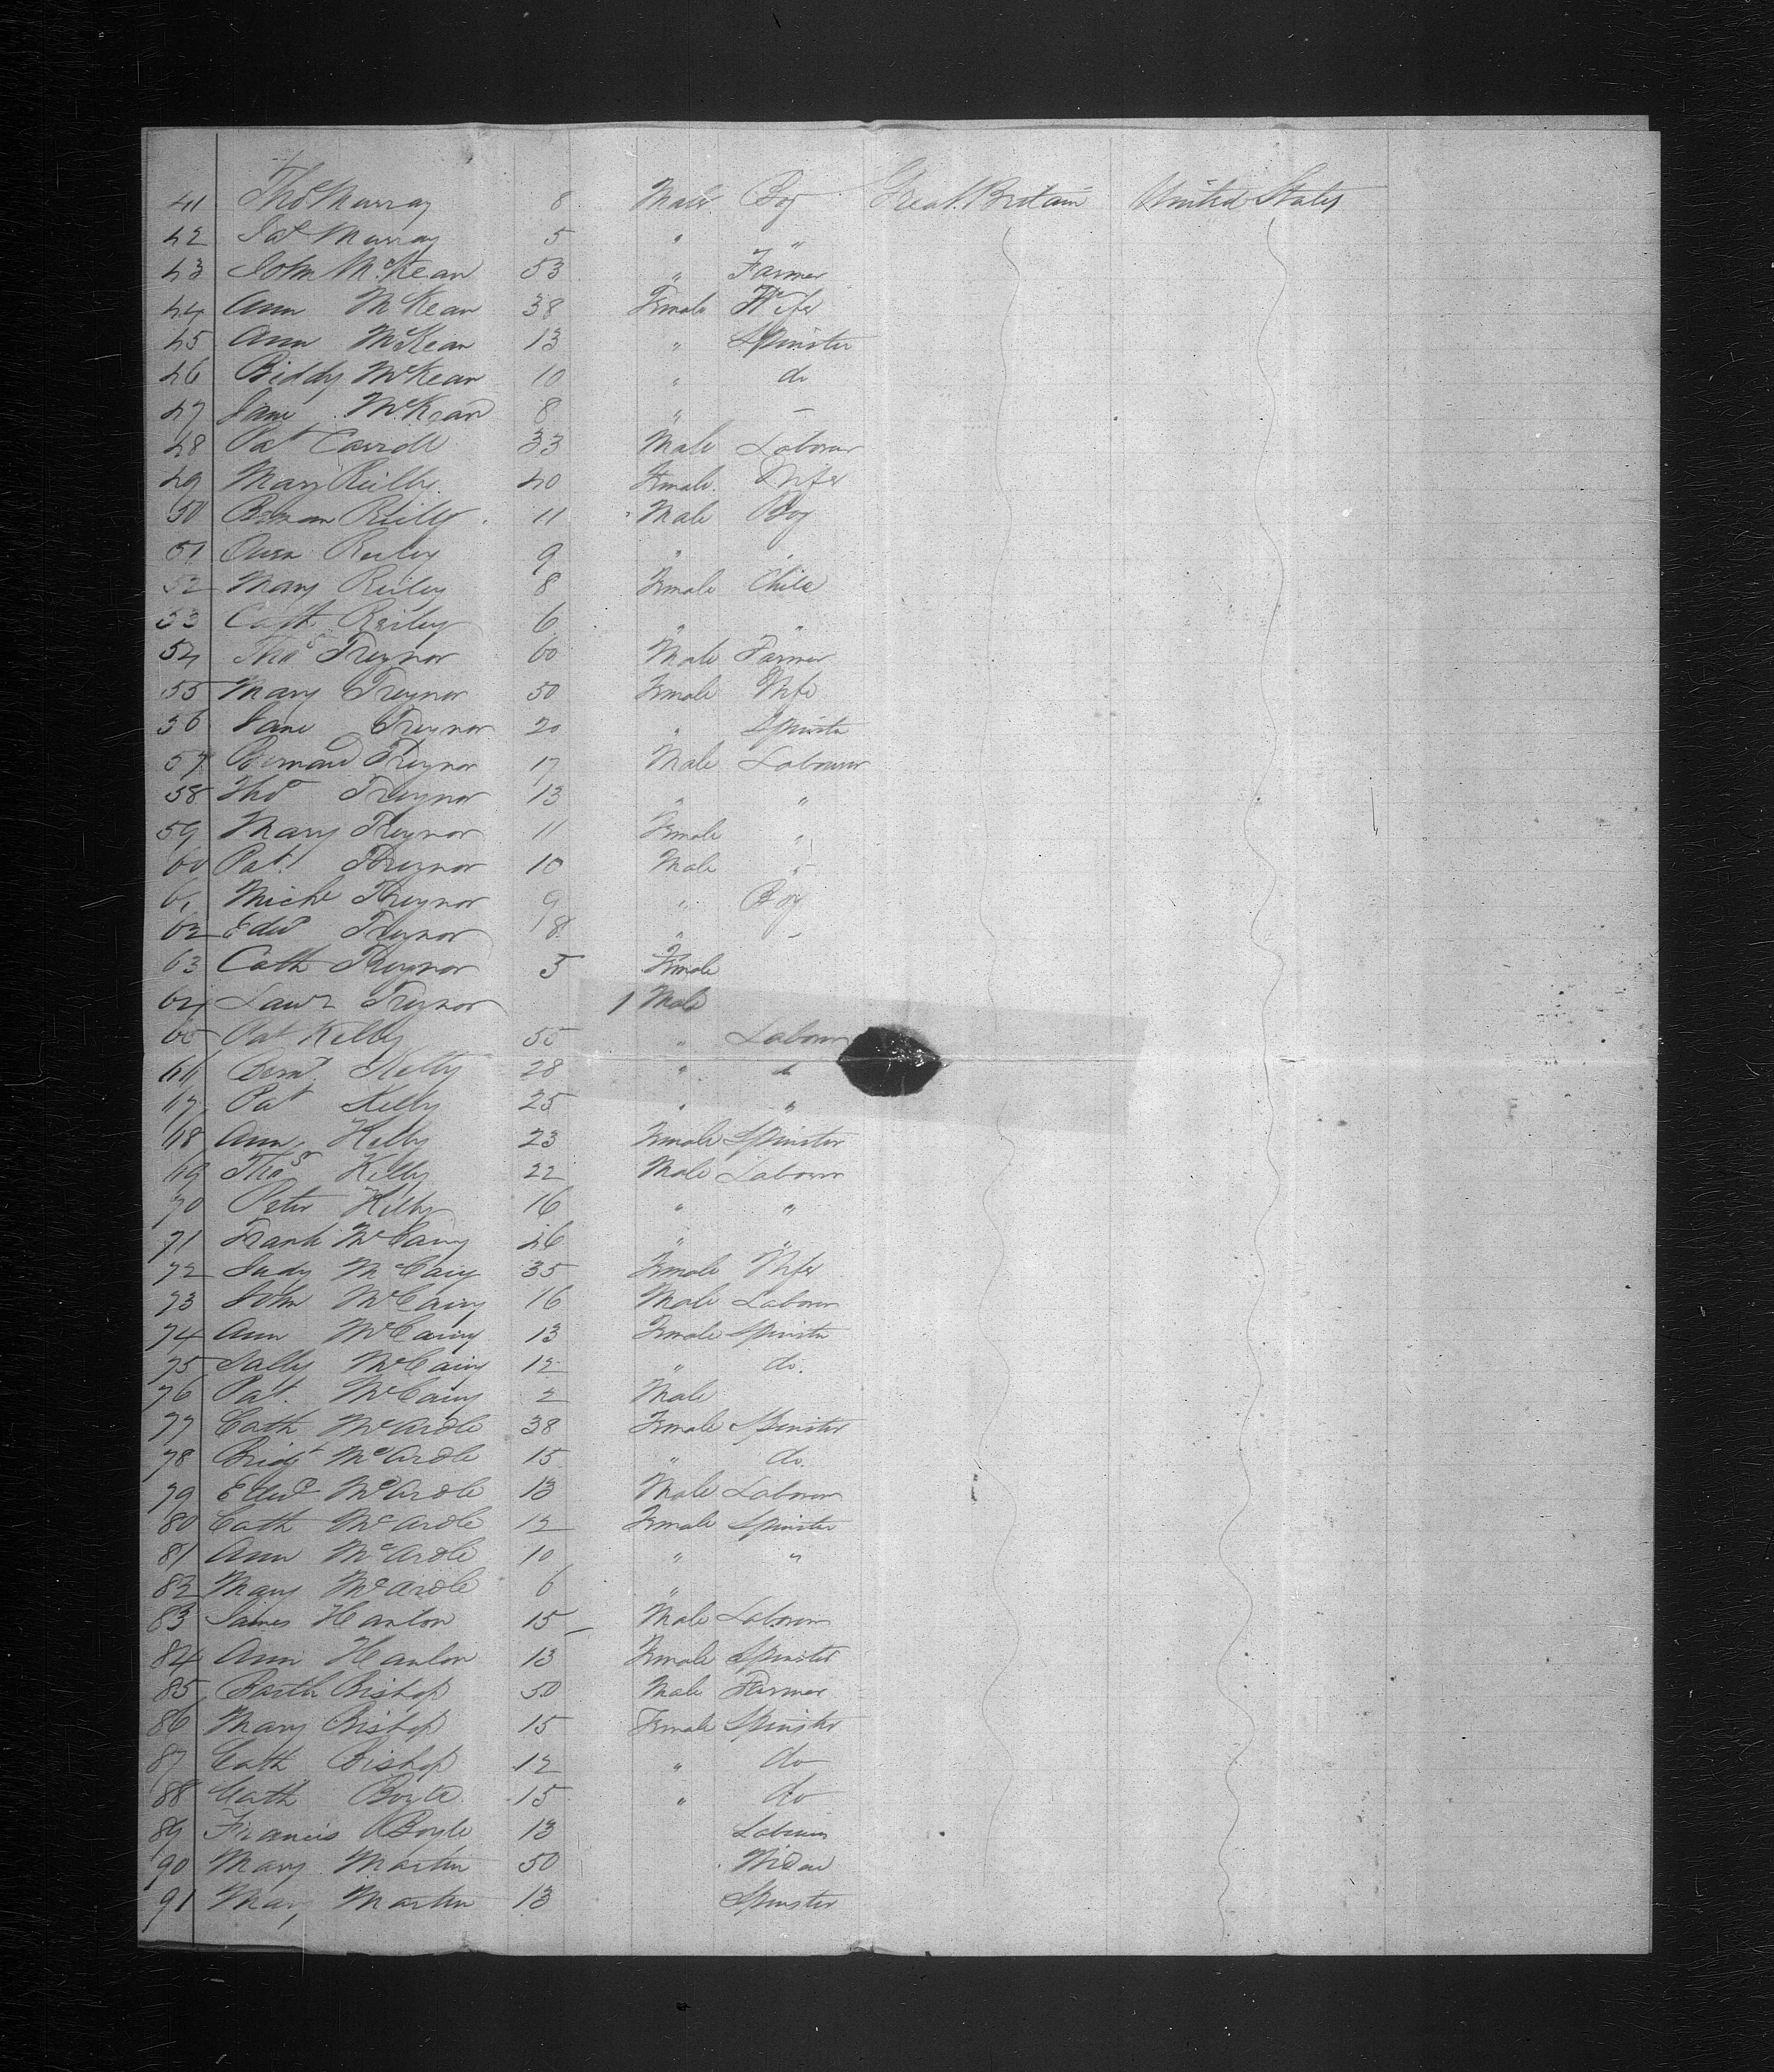 41 Thos Murray 8 Male Boy Great Britain United States
42 Pat Murray 5 " "
43 John McKean 53 " Farmer
44 Ann McKean 38 Female Wife
45 Ann McKean 13 " Spinster
46 Biddy McKean 10 " do
47 Jane McKean 8 " –
48 Pat Carroll 33 Male Labourer
49 Mary Reilly 40 Female Wife
50 Reilly 11 Male Boy
51 Owen Reiley 9 " "
52 Mary Reiley 8 Female Child
53 Cath Reiley 6 " "
54 Thos Treynor 60 Male Farmer
55 Mary Treynor 50 Female Wife
56 Jane Treynor 20 " Spinster
57 Bernard Treynor 17 Male Labourer
58 Thos Treynor 13 " "
59 Mary Treynor 11 Female "
60 Pat Treynor 10 Male "
61 Michl Treynor 9 " Boy
62 Edwd Treynor 8 " "
63 Cath Treynor 5 Female
64 Lawr Treynor 1 Male
65 Pat Kelly 55 " Labourer
66 Bernd Kelly 28 " "
67 Pat Kelly 25 " "
68 Ann Kelly 23 Female Spinster
69 Thos Kelly 22 Male Labourer
70 Peter Kelly 16 " "
71 Frank 46 " "
72 Judy 35 Female Wife
73 John 16 Male Labourer
74 Ann 13 Female Spinster
75 Sally 12 " do.
76 Pat. 2 Male
77 Cath McArdle 38 Female Spinster
78 Bridt McArdle 15 " do.
79 Edwd McArdle 13 Male Labourer
80 Cath McArdle 12 Female Spinster
81 Ann McArdle 10 " "
82 Mary McArdle 6 "
83 James Hanlon 15 Male Labourer
84 Ann Hanlon 13 Female Spinster
85 Barth Bishop 50 Male Farmer
86 Mary Bishop 15 Female Spinster
87 Cath Bishop 12 " do
88 Cath Boyle 15 " do
89 Francis Boyle 13 Labourer
90 Mary Martin 50 Widow
91 Mary Martin 13 Spinster